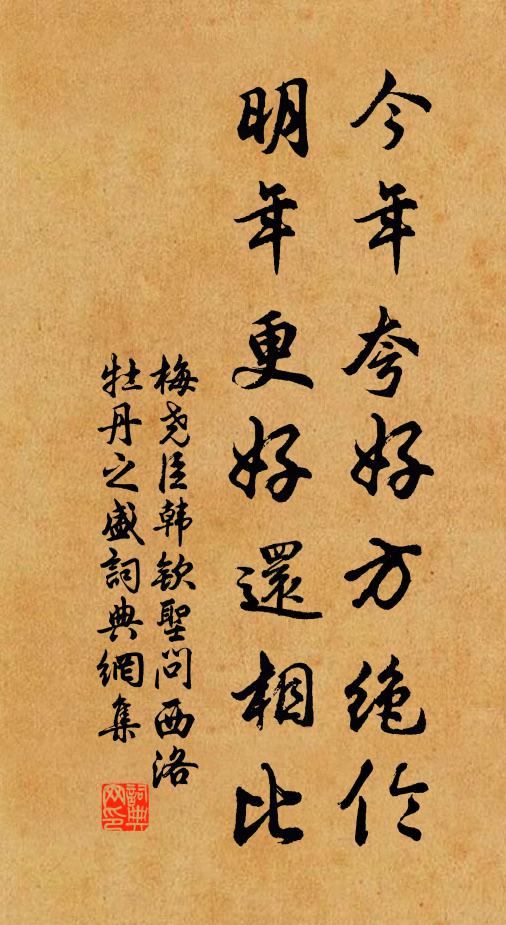 今年夸好方绝伦
明年更好還相比
梅尧臣韩钦聖问西洛
牡丹之盛詞典網集
詞典网印